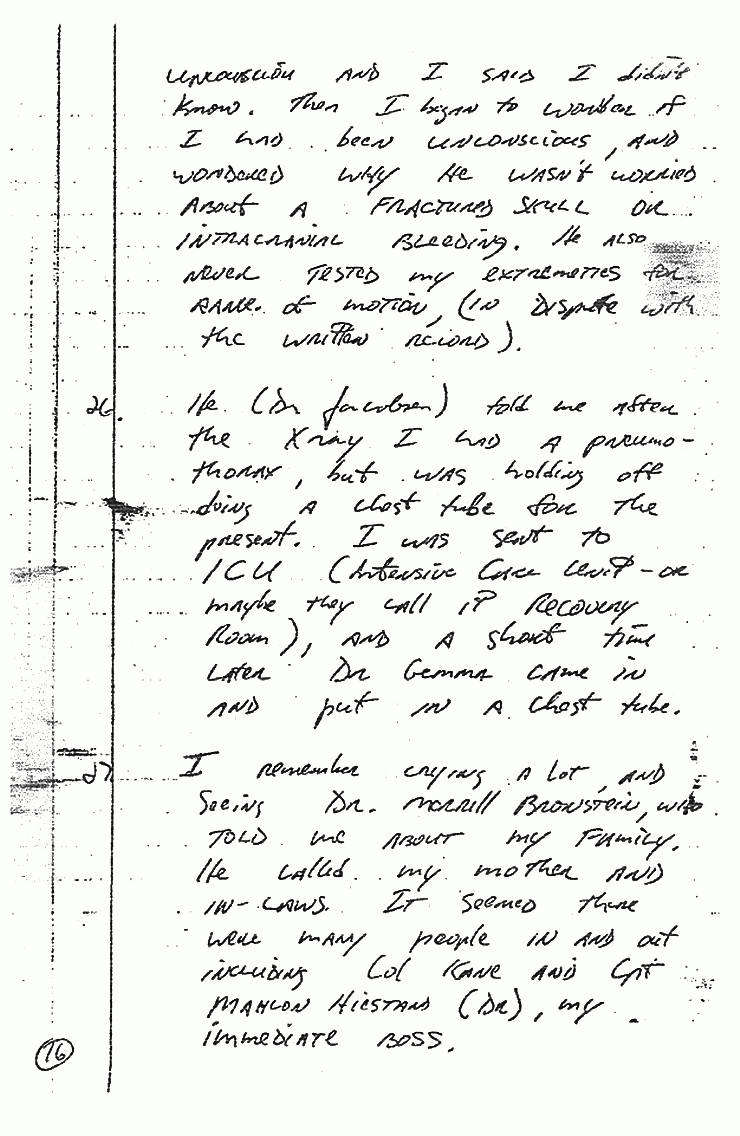 unconscious AND I SAID I didn't
know. Then I began to wonder if
I HAD been UNCONSCIOUS, AND
WONDERED WHY He WASN'T WORRIED
ABOUT A FRACTURED SKULL OR
INTRACRANIAL BLEEDING. He ALSO
NEVER TESTED my EXTREMETIES for
RANGE of MOTION, (IN Dispute with
the WRITTEN RECORD).
26. He (Dr Jacobsen) told me AFTER
the Xray I HAD A PNEUMO-
THORAX, but WAS holding off
doing A chest tube for the
present. I WAS sent to
ICU (Intensive Care Unit - OR
maybe they call it Recovery
Room), AND A short time
LATER Dr Gemma CAME in
AND put IN A Chest tube.
27 I remember crying A Lot, AND
Seeing Dr. Merrill Bronstein, who
TOLD me ABOUT my FAMILY.
He called my mother AND
IN-LAWS. IT Seemed there
were MANY people IN AND out
including Col KANE AND Cpt
MAHLON HIESTAND (DR), my
immediATE BOSS.
76